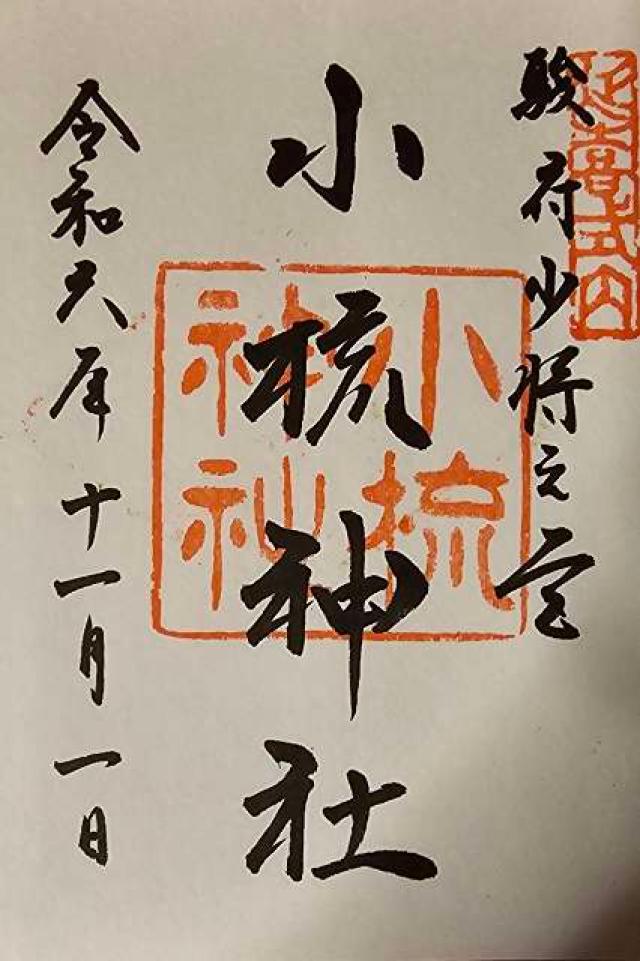 延喜式内
駿府少将之宮
小梳神社
小梳神社
令和六年十一月一日